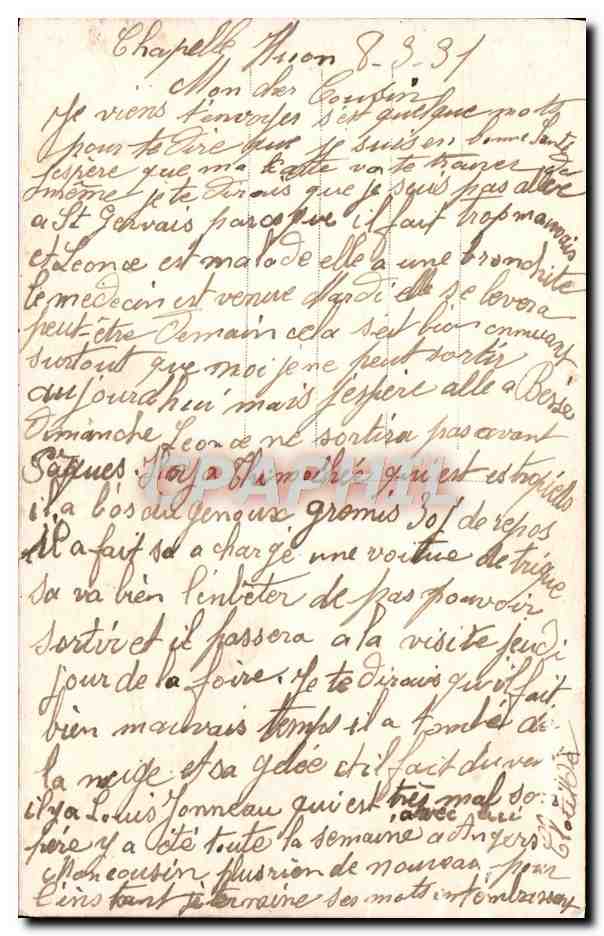 Chapelle Huon 8-3-31
Mon cher Cousin
Je viens t'envoyes s'est quelque mots
pour te dire que je suis en bonne Santé
j'espère que ma carte va te trouver de
même je te dirais que je suis pas allée
a St Gervais parceque il fait trop mauvais
et Leonce est malade elle a une bronchite
le medecin est venue Mardi elle se levera
peut-être demain cela s'est bien ennuyant
surtout que moi je ne peut sortir
aujourdhui mais j'espère alle a Besse
Dimanche Leonce ne sortira pas avant
Pâques. Il y a Thimothée qui est estropiés
il a l'os du genoux gromis 30j de repos
il a fait sa a chargé une voiture de trique
sa va bien l'enbêter de pas pouvoir
sortir et il passera a la visite jeudi
jour de la foire. Je te dirais qu'il fait
bien mauvais temps il a tombé de
la neige et sa gelée et il fait du ven
il y a Louis Jonneau qui est très mal so
avec lui
père y a été toute la semaine a Angers
Mon cousin plus rien de nouveau pour
l'instant je termine ses mots en t'embrassant
Clotilde
CPAPHIL